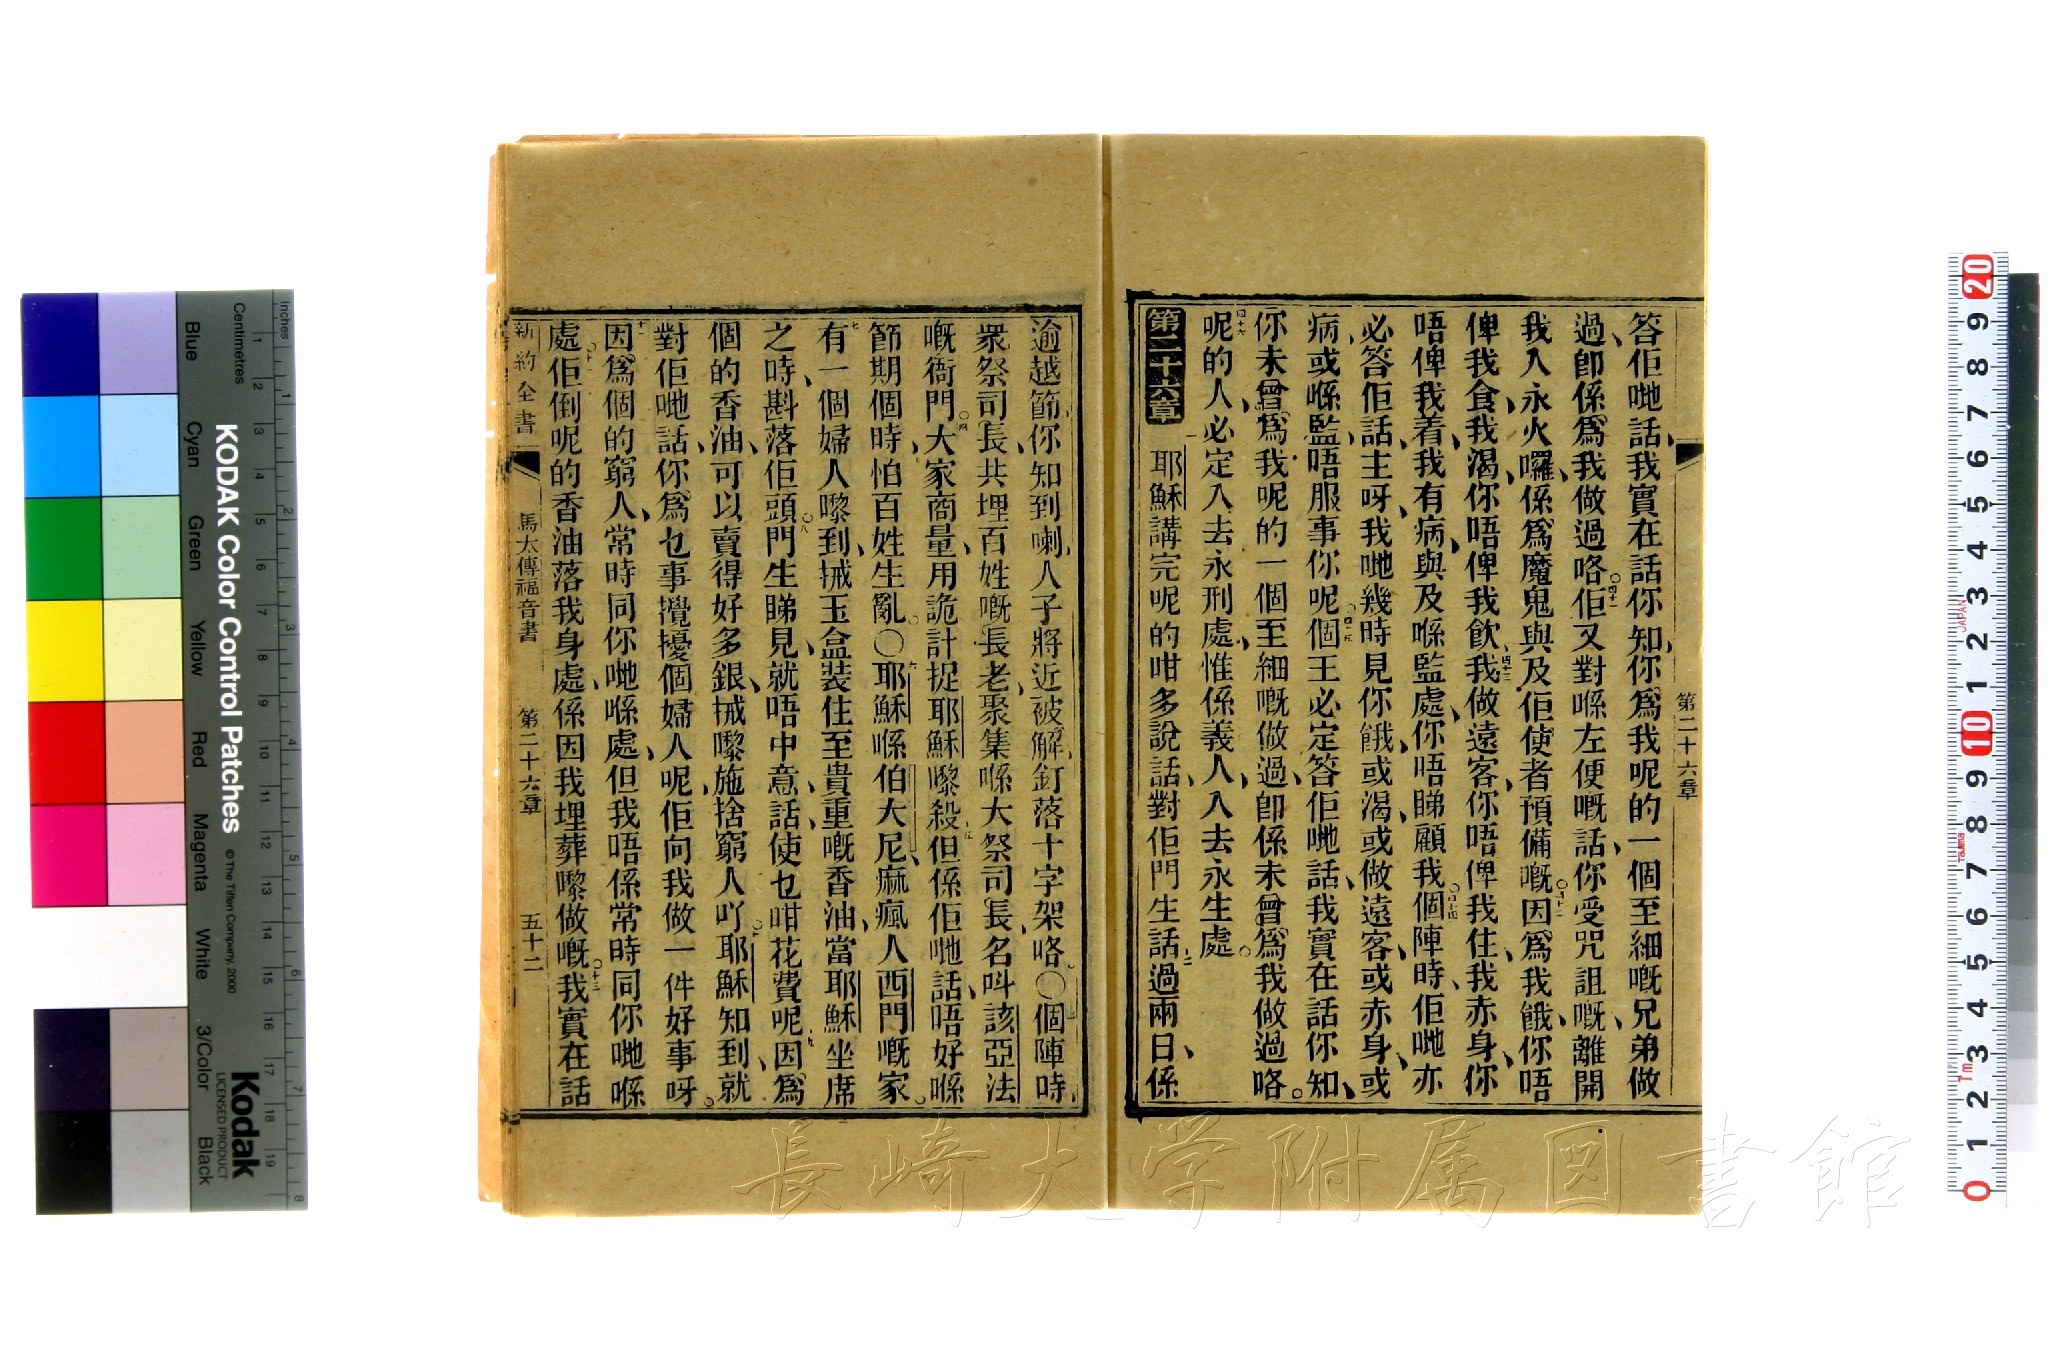 第二十六章
答佢哋話、我實在話你知、你爲我呢的一個至細嘅兄弟做
過、卽係爲我做過咯。四十一佢又對喺左便嘅話、你受咒詛嘅離開
我入永火囉、係爲魔鬼與及佢使者預備嘅。四十二因爲我餓、你唔
俾我食、我渴、你唔俾我飮、四十三我做遠客、你唔俾我住、我赤身、你
唔俾我着、我有病、與及喺監處、你唔睇顧我。四十四個陣時、佢哋亦
必答佢話、主呀、我哋幾時見你餓、或渴、或做遠客、或赤身、或
病、或喺監、唔服事你呢。四十五個王必定答佢哋話、我實在話你知、
你未曾爲我呢的一個至細嘅做過、卽係未曾爲我做過咯。
四十六呢的人、必定入去永刑處、惟係義人、入去永生處。
第二十六章 一耶穌講完呢的咁多說話、對佢門生話、二過兩日、係
逾越節、你知到喇、人子將近被解、釘落十字架咯。〇三個陣時、
衆祭司長、共埋百姓嘅長老、聚集喺大祭司長、名呌該亞法
嘅衙門、四大家商量、用詭計捉耶穌嚟殺、五但係佢哋話、唔好喺
節期個時、怕百姓生亂。〇六耶穌喺伯大尼麻瘋人西門嘅家。
七有一個婦人嚟到、㧜玉盒裝住至貴重嘅香油、當耶穌坐席
之時、斟落佢頭。八門生睇見、就唔中意、話、使乜咁花費呢。九因爲
個的香油、可以賣得好多銀、㧜嚟施捨窮人吖。十耶穌知到、就
對佢哋話、你爲乜事攪擾個婦人呢、佢向我做一件好事呀。
十一因爲個的窮人、常時同你哋喺處、但我唔係常時同你哋喺
處。十二佢倒呢的香油落我身處、係因我埋葬嚟做嘅。十三我實在話
新約全書 馬太傳福音書 第二十六章 五十二
長崎大学附属図書館
Inches
Centimetres
KODAK Color Control Patches
© The Tiffen Company, 2000
Kodak
LICENSED PRODUCT
Blue Cyan Green Yellow Red Magenta White 3/Color Black
JAPAN
Tajima